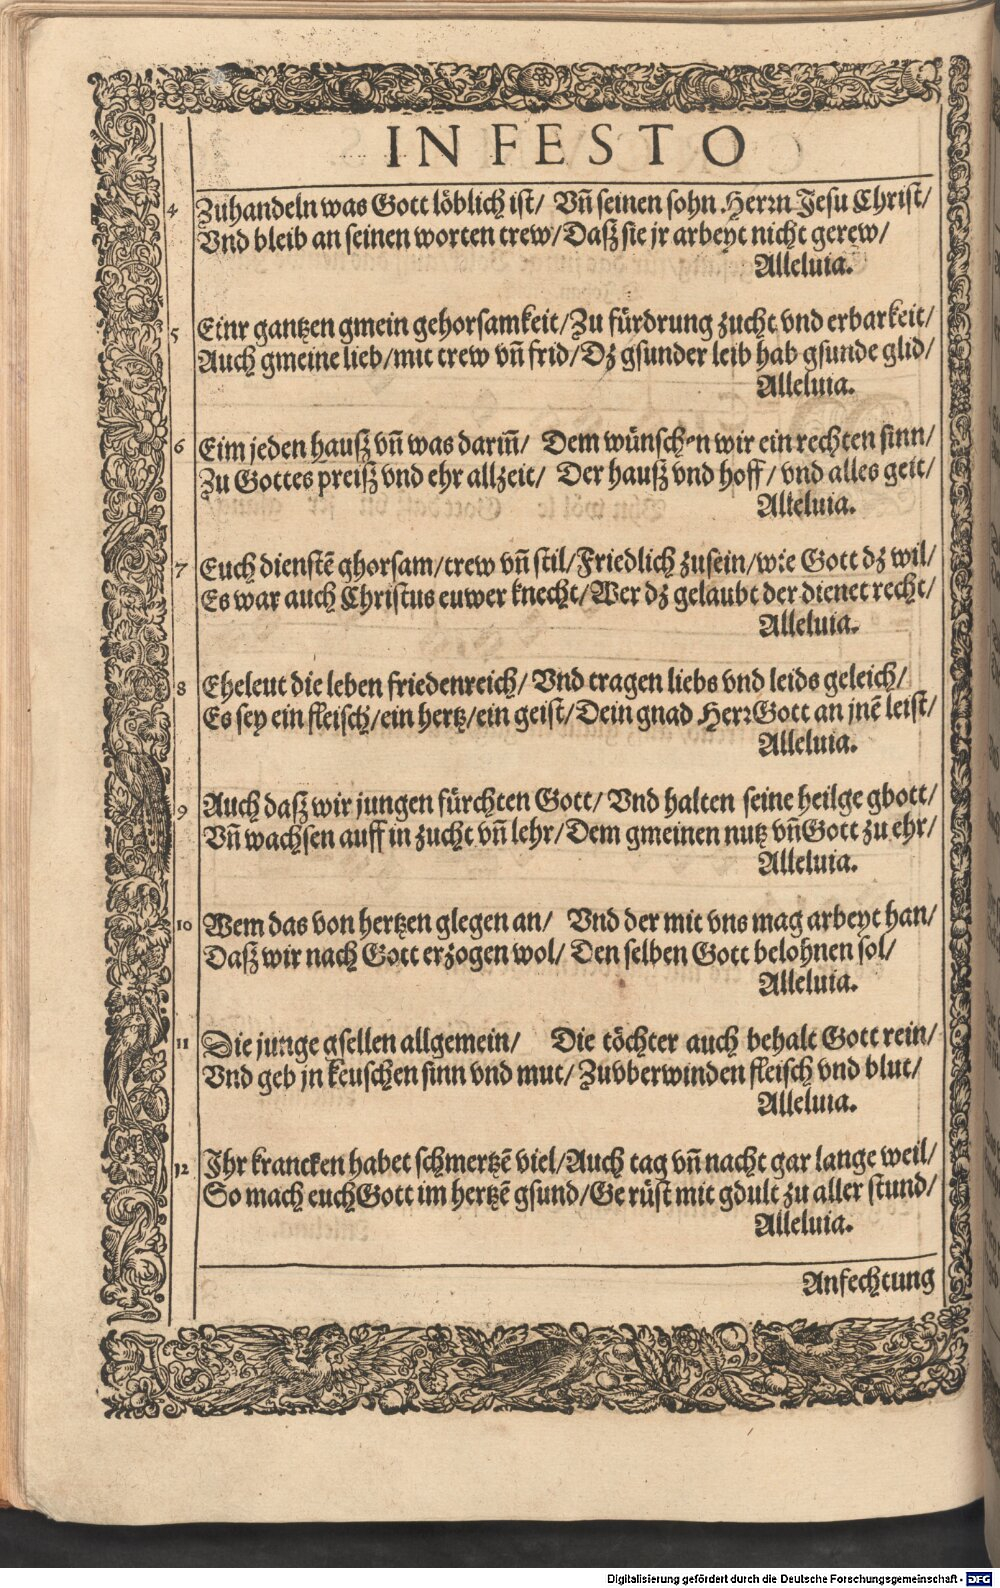 IN FESTO
4 Zuhandeln was Gott löblich ist/ Vñ seinen sohn Herrn Jesu Christ/
Vnd bleib an seinen worten trew/ Daß sie jr arbeyt nicht gerew/
Alleluia.
5 Einr gantzen gmein gehorsamkeit/ Zu fürdrung zucht vnd erbarkeit/
Auch gmeine lieb/ mit trew vñ frid/ Dz gsunder leib hab gsunde glid/
Alleluia.
6 Eim jeden hauß vñ was dariñ/ Dem wünschen wir ein rechten sinn/
Zu Gottes preiß vnd ehr allzeit/ Der hauß vnd hoff/ vnd alles geit/
Alleluia.
7 Euch dienstẽ ghorsam/ trew vñ stil/ Friedlich zusein/ wie Gott dz wil/
Es war auch Christus euwer knecht/ Wer dz gelaubt der dienet recht/
Alleluia.
8 Eheleut die leben friedenreich/ Vnd tragen liebs vnd leids geleich/
Es sey ein fleisch/ ein hertz/ ein geist/ Dein gnad Herr Gott an jnẽ leist/
Alleluia.
9 Auch daß wir jungen fürchten Gott/ Vnd halten seine heilge gbott/
Vñ wachsen auff in zucht vñ lehr/ Dem gmeinen nutz vñ Gott zu ehr/
Alleluia.
10 Wem das von hertzen glegen an/ Vnd der mit vns mag arbeyt han/
Daß wir nach Gott erzogen wol/ Den selben Gott belohnen sol/
Alleluia.
11 Die junge gsellen allgemein/ Die töchter auch behalt Gott rein/
Vnd geb jn keuschen sinn vnd mut/ Zuvberwinden fleisch vnd blut/
Alleluia.
12 Ihr krancken habet schmertzẽ viel/ Auch tag vñ nacht gar lange weil/
So mach euch Gott im hertzẽ gsund/ Ge rüst mit gdult zu aller stund/
Alleluia.
Anfechtung
Digitalisierung gefördert durch die Deutsche Forschungsgemeinschaft - DFG